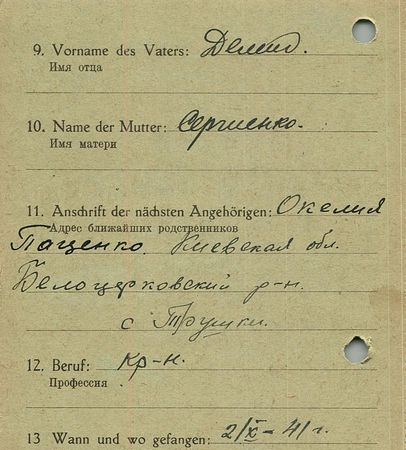 9. Vorname des Vaters: Демид.
Имя отца
10. Name der Mutter: Сергиенко.
Имя матери
11. Anschrift der nächsten Angehörigen: Окелия
Адрес ближайших родственников
Пащенко. Киевская обл.
Белоцерковский р-н.
с Трушки.
12. Beruf: кр-н.
Профессия
13 Wann und wo gefangen: 2/X-41 г.